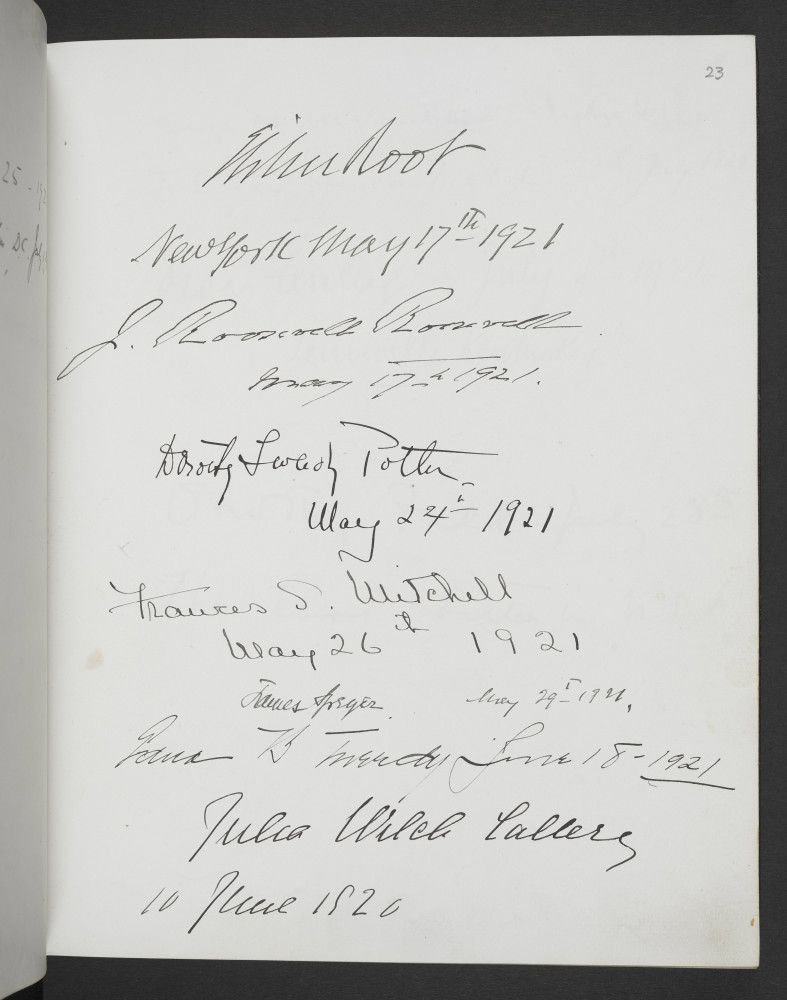 23
Elihu Root
New York May 17th 1921
J. Roosevelt Roosevelt.
May 17th 1921.
Dorothy Potter
May 24th 1921
Frances S. Mitchell
May 26th 1921
James Speyer. May 29t 1921.
Edna B June 18-1921
Julia Welch Callery
10 June 1920